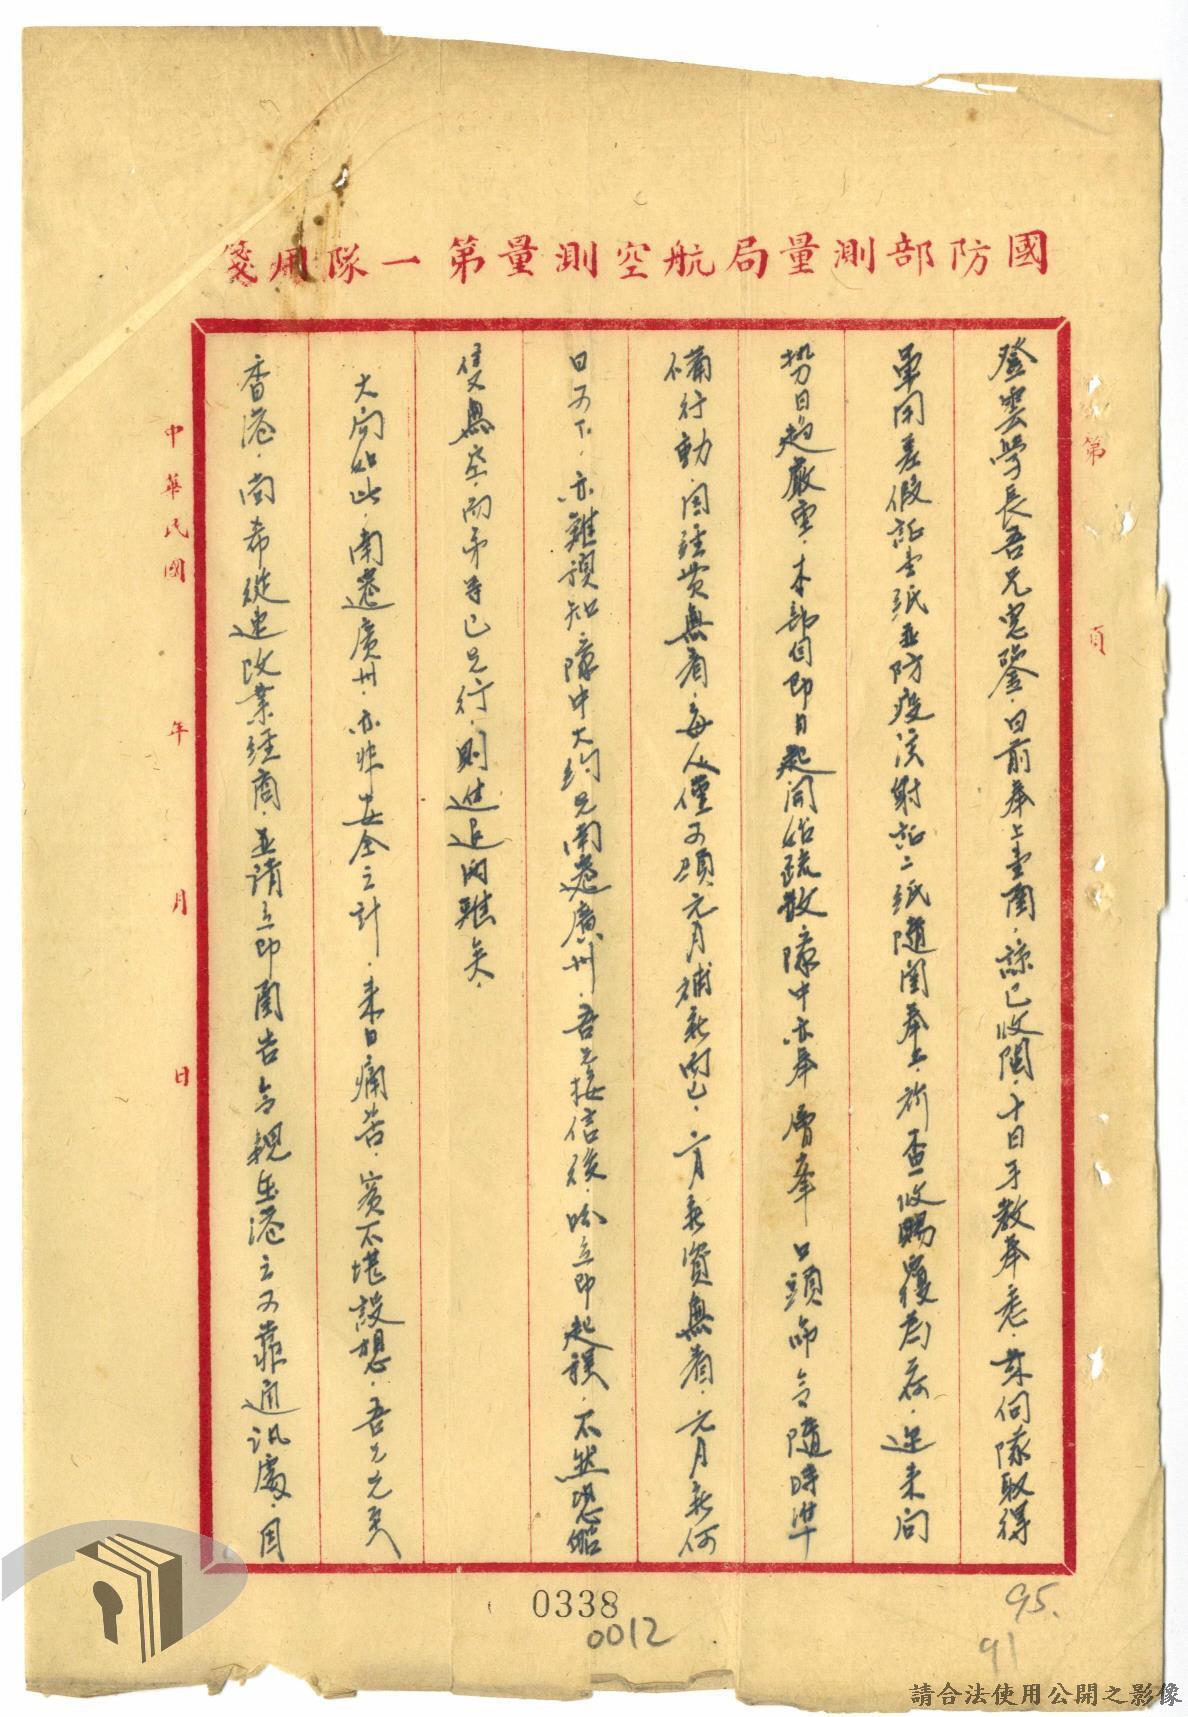 國防部測量局航空測量第一隊用箋
第 頁
登雲學長吾兄惠鑒·日前奉上壹函·諒已收閱·十日手教奉悉·茲向隊取得
軍用差假証壹紙並防疫注射証二紙隨函奉上·祈查收賜覆為荷·近來局
勢日趨嚴重·本部自即日起開始疏散隊中亦奉 層峯 口頭命令隨時準
備行動·因經費無着·每人僅可領元月補薪而已·二月薪資無着·元月薪何
日可下·亦難預知隊中大約先南遷廣州·吾兄接信後·盼立即起程·不然恐船
隻無空·而弟等已先行·則進退兩難矣·
大局如此·南遷廣州·亦非安全之計·來日痛苦·實不堪設想·吾兄 至
香港·尚希從速改業經商·並請立即函告令親在港之可靠通訊處·因
中華民國 年 月 日
0338
0012
95.
91
請合法使用公開之影像